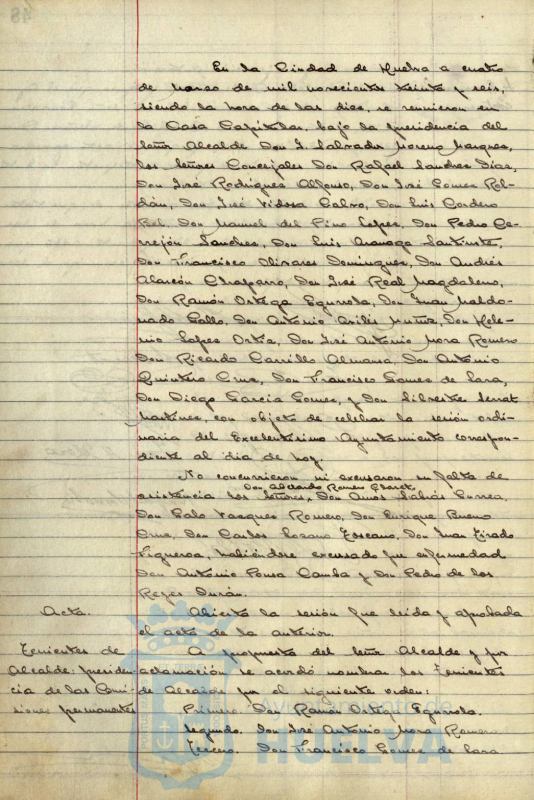 En la Ciudad de Huelva a cuatro
de marzo de mil novecientos treinta y seis,
siendo la hora de las diez, se reunieron en
la Casa Capitular, bajo la presidencia del
Señor Alcalde Don J. Salvador Moreno Marquez,
los Señores Concejales Don Rafael Sanchez Díaz,
Don José Rodríguez Alfonso, Don José Gomez Rol-
dán, Don José Vidosa Calvo, Don Luis Cordero
Bel, Don Manuel del Pino Lopez, Don Pedro Ce-
rrejón Sanchez, Don Luis
Don Francisco Olivares Dominguez, Don Andrés
Alarcón Chaparro, Don José Real Magdaleno,
Don Ramón Ortega Egurrola, Don Juan Maldo-
nado Gallo, Don Antonio Muñiz, Don Hele-
nio Lopez Ortiz, Don José Antonio Mora Romero
Don Ricardo Carrillo Almansa, Don Antonio
Quintero Cruz, Don Francisco Gomez de Lara,
Don Diego García Gomez, y Don Silvestre Serrat
Martinez, con objeto de celebrar la sesión ordi-
naria del Excelentísimo Ayuntamiento correspon-
diente al día de hoy.
No concurrieron ni excusaron su falta de
Don Romero Claret,
asistencia los Señores, Don Amós Sabrás Gurrea,
Don Galo Vazquez Romero, Don Enrique Bueno
Cruz, Don Carlos Lozano Toscano, Don Juan Tirado
Figueroa, habiéndose excusado por enfermedad
Don Antonio Ponsa Camba y Don Pedro de los
Reyes Durán.
Acta. Abierta la sesión fue leída y aprobada
el acta de la anterior.
Tenientes de A propuesta del Señor Alcalde y por
Alcalde: presiden- aclamación se acordó nombrar los Tenientes
cia de las Comi- de Alcalde por el siguiente orden:
siones permanentes Primero. Don Ramón Ortega Egurrola.
Segundo. Don José Antonio Mora Romero
Tercero. Don Francisco Gomez de Lara
Ayuntamiento de
HUELVA